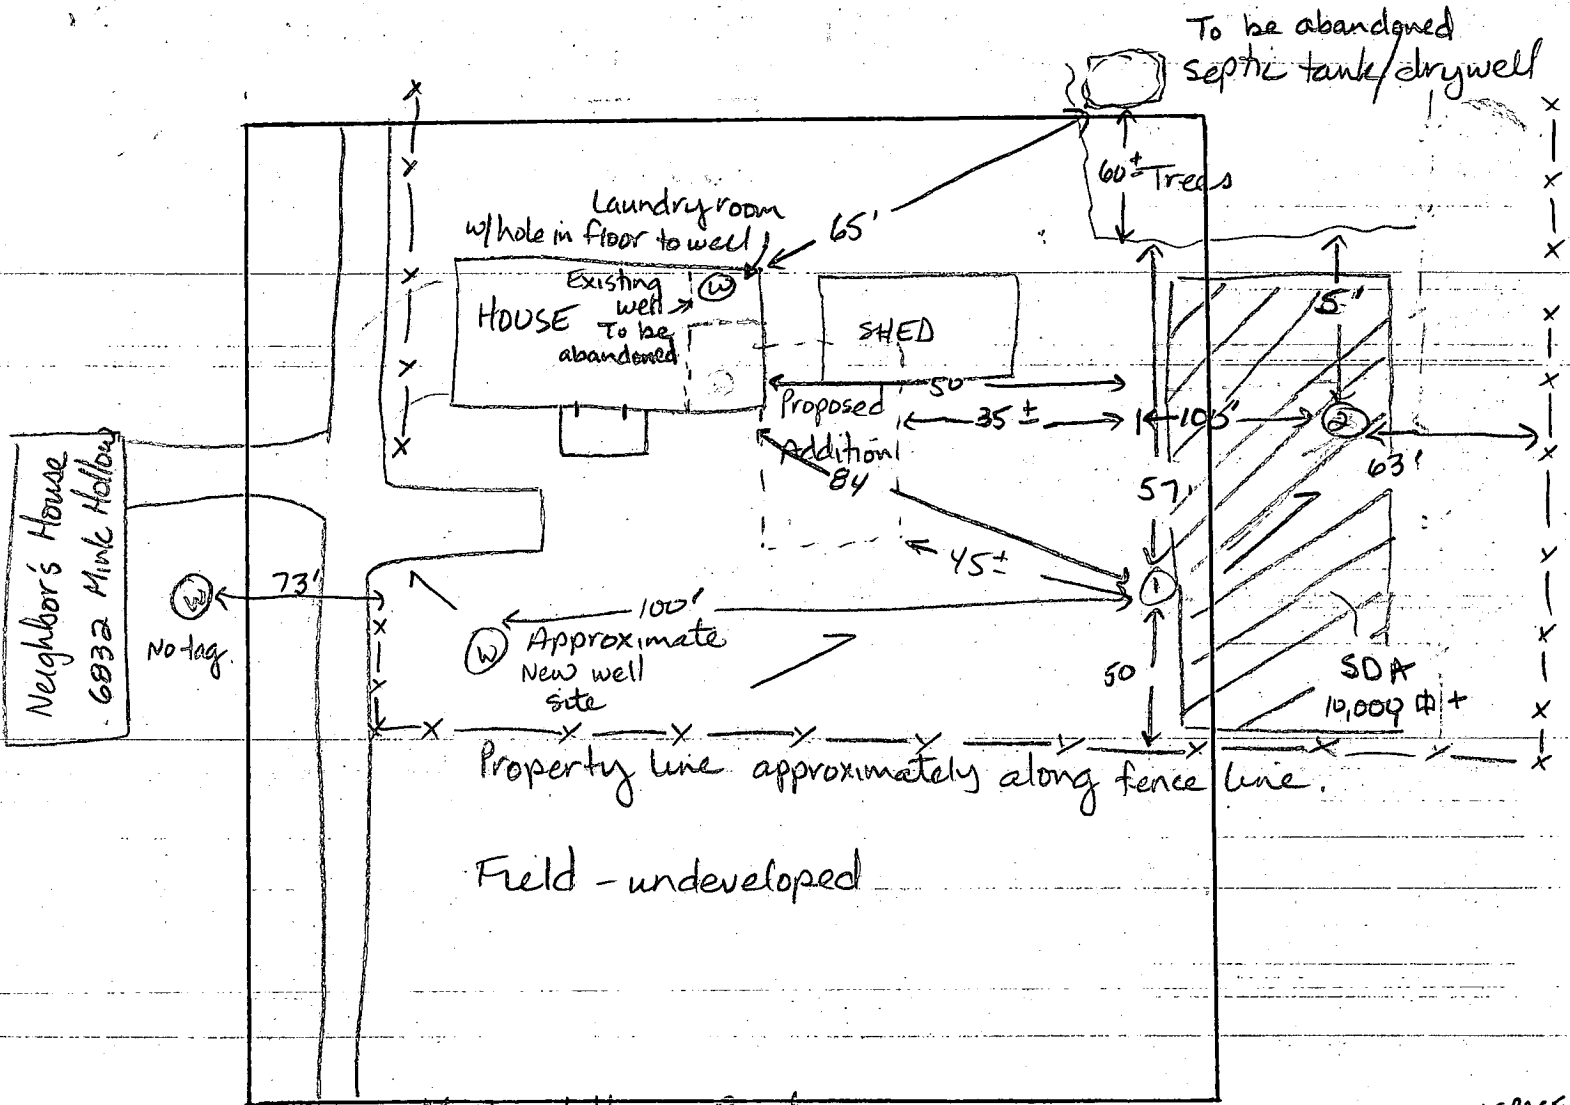 To be abandoned
septic tank/drywell
60± Trees
Laundry room
w/hole in floor to well
65'
Existing
well
To be
abandoned
W
HOUSE
SHED
5'
50
Proposed
Addition
35±
105'
2
63'
84
57'
45±
1
Neighbor's House
6832 Mink Hollow
W
73'
No tag.
100'
W
Approximate
New well
site
50
SDA
10,000 +
Property line approximately along fence line.
Field - undeveloped